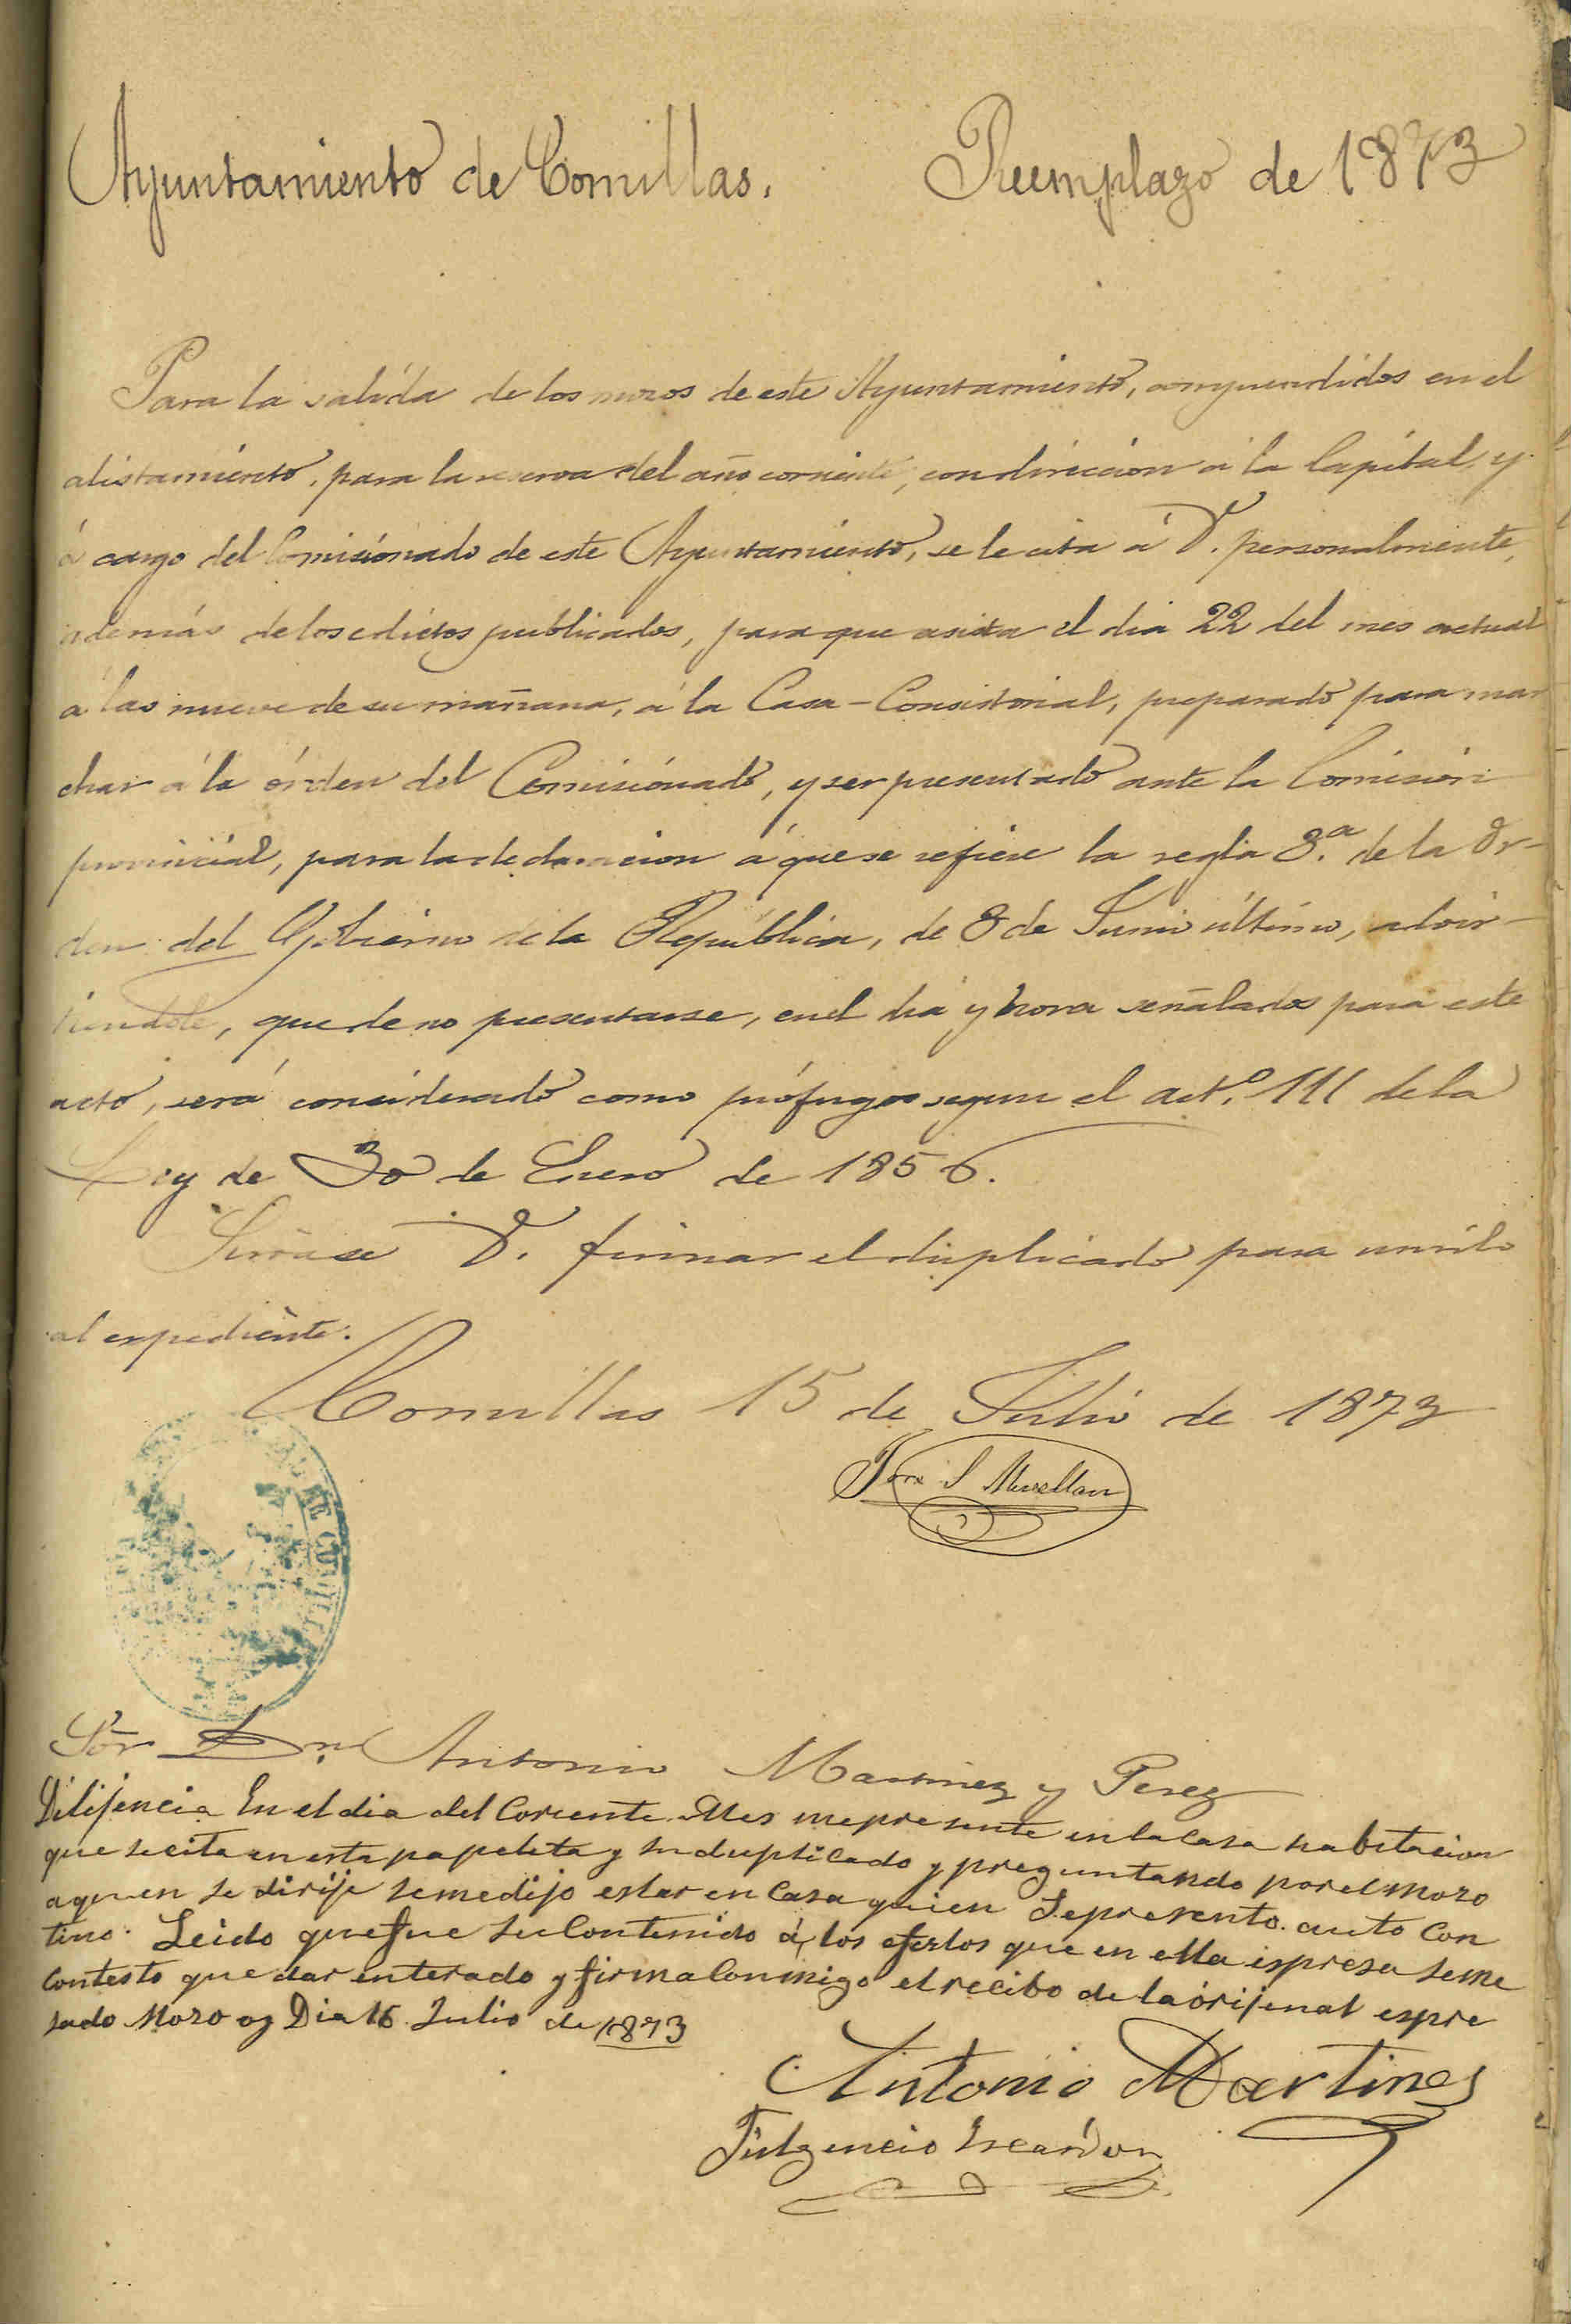 Ayuntamiento de Comillas. Reemplazo de 1873
Para la salida de los mozos de este Ayuntamiento, comprendidos en el
alistamiento, para la reserva del año corriente, con direccion á la Capital, y
á cargo del Comisionado de este Ayuntamiento, se le cita á V. personalmente,
además de los edictos publicados, para que asista el dia 22 del mes actual
á las nueve de su mañana, á la Casa-Consistorial, preparado para mar
char á la órden del Comisionado, y ser presentado ante la Comision
provincial, para la declaracion á que se refiere la regla 8.ª de la Or-
den del Gobierno de la República, de 8 de Junio último, advir-
tiendole, que de no presentarse, en el dia y hora señalados para este
acto, será considerado como prófugo segun el art.º 111 de la
Ley de 30 de Enero de 1856.
Sirvase V. firmar el duplicado para unirlo
al expediente.
Comillas 15 de Julio de 1873
DE COMILL
Sor Dn. Antonio Martinez y Perez
Dilijencia En el dia del Coriente Mes me presente en la casa habitacion
que se cita en esta papeleta y su duplicado y preguntando por el mozo
a quien se dirije se me dijo estar en casa quien se presento auto con
tino. Leido que fue su Contenido á los efertos que en ella espresa se me
Contesto quedar enterado y firma Conmigo el recibo de la orijenal espre
sado Mozo oy Dia 16 Julio de 1873
Antonio Martines
Fulgencio Escandon